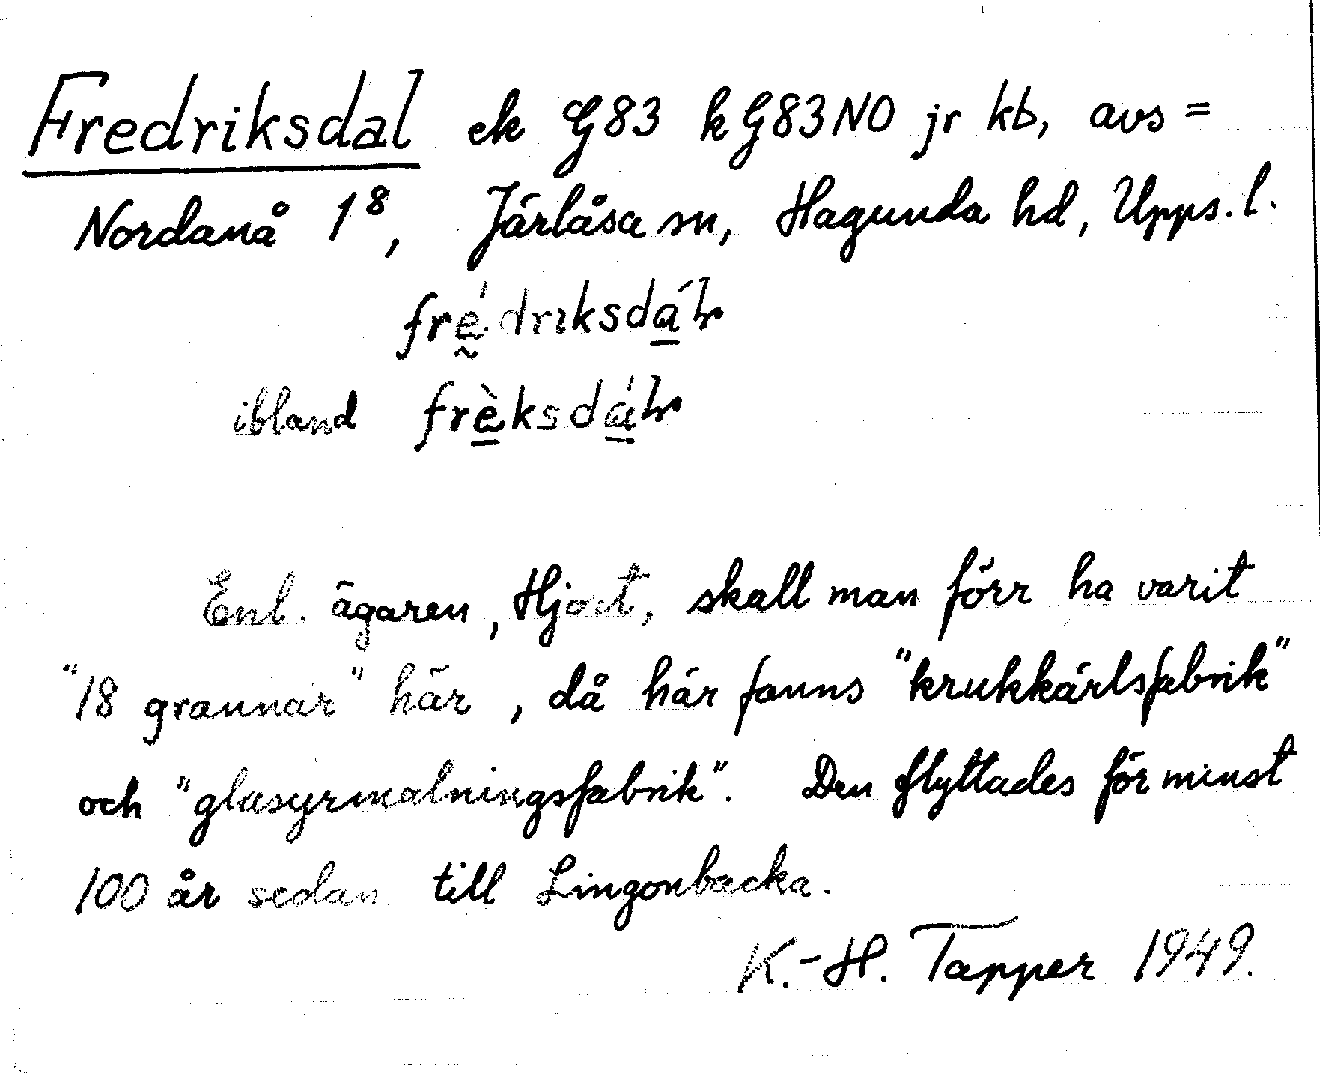 Fredriksdal ek G83 kG83NO jr kb, avs =
Nordanå 1⁸, Järlåsa sn, Hagunda hd, Upps. l.
frè̲driksdá̲ɫ
ibland frè̲ksdá̲ɫ
Enl. ägaren, Hjort, skall man förr ha varit
"18 grannar" här, då här fanns "krukkärlsfabrik"
och "glasyrmalningsfabrik". Den flyttades för minst
100 år sedan till Lingonbacka.
K.-H. Tapper 1949.